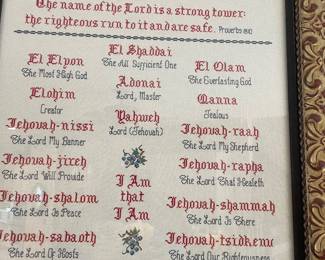 The name of the Lord is a strong tower:
the righteous run to it and are safe. Proverbs 18:10
El Elyon
The Most High God
Elohim
Creator
Jehovah-nissi
The Lord My Banner
Jehovah-jireh
The Lord Will Provide
Jehovah-shalom
The Lord Is Peace
Jehovah-sabaoth
The Lord Of Hosts
El Shaddai
The All Sufficient One
Adonai
Lord, Master
Yahweh
Lord (Jehovah)
I Am
that
I Am
El Olam
The Everlasting God
Qanna
Jealous
Jehovah-raah
The Lord My Shepherd
Jehovah-rapha
The Lord That Healeth
Jehovah-shammah
The Lord Is There
Jehovah-tsidkenu
The Lord Our Righteousness